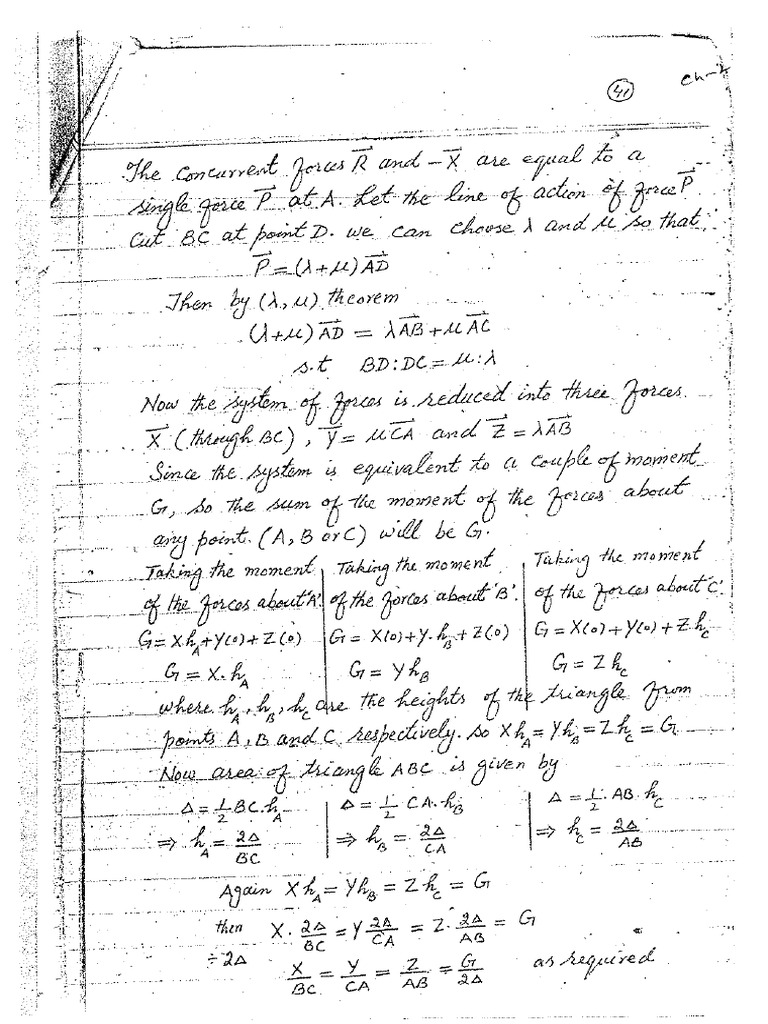 41
ch-2
The concurrent forces R⃗ and -X⃗ are equal to a
single force P⃗ at A. Let the line of action of force P⃗
cut BC at point D. we can choose λ and μ so that
P⃗ = (λ+μ) AD⃗
Then by (λ, μ) theorem
(λ+μ) AD⃗ = λAB⃗ + μAC⃗
s.t BD:DC = μ:λ
Now the system of forces is reduced into three forces.
X⃗ (through BC), Y⃗ = μCA⃗ and Z⃗ = λAB⃗
Since the system is equivalent to a couple of moment
G, so the sum of the moment of the forces about
any point. (A, B or C) will be G.
Taking the moment | Taking the moment | Taking the moment
of the forces about 'A'. | of the forces about 'B'. | of the forces about 'C'.
G = Xh_A + Y(0) + Z(0) | G = X(0) + Y.h_B + Z(0) | G = X(0) + Y(0) + Z.h_C
G = X.h_A | G = Yh_B | G = Zh_C
where h_A, h_B, h_C are the heights of the triangle from
points A, B and C respectively. so Xh_A = Yh_B = Zh_C = G
Now area of triangle ABC is given by
Δ = 1/2 BC.h_A | Δ = 1/2 CA.h_B | Δ = 1/2 AB.h_C
⇒ h_A = 2Δ/BC | ⇒ h_B = 2Δ/CA | ⇒ h_C = 2Δ/AB
Again Xh_A = Yh_B = Zh_C = G
then X. 2Δ/BC = Y 2Δ/CA = Z. 2Δ/AB = G
÷2Δ X/BC = Y/CA = Z/AB = G/2Δ as required